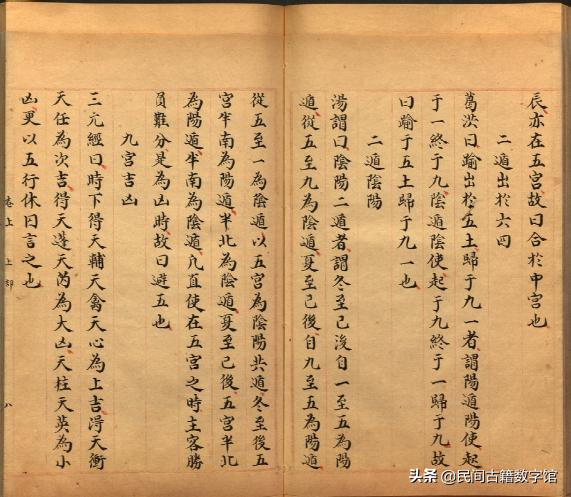 辰亦在五宮故曰合於中宮也
二遁出於六四
葛洪曰踰出於五土歸于九一者謂陽遁陽使起
于一終于九陰遁陰使起于九終于一歸于九故
曰踰于五土歸于九一也
二遁陰陽
湯謂曰陰陽二遁者謂冬至已後自一至五為陽
遁從五至九為陰遁夏至已後自九至五為陽遁
從五至一為陰遁以五宮為陰陽共遁冬至後五
宮半南為陽遁半北為陰遁夏至已後五宮半北
為陽遁半南為陰遁凡直使在五宮之時主客勝
負難分是為凶時故曰避五也
九宮吉凶
三元經曰時下得天輔天禽天心為上吉得天衝
天任為次吉得天蓬天芮為大凶天柱天英為小
凶更以五行休囚言之也
卷上 上部 八
头条 @民间古籍数字馆